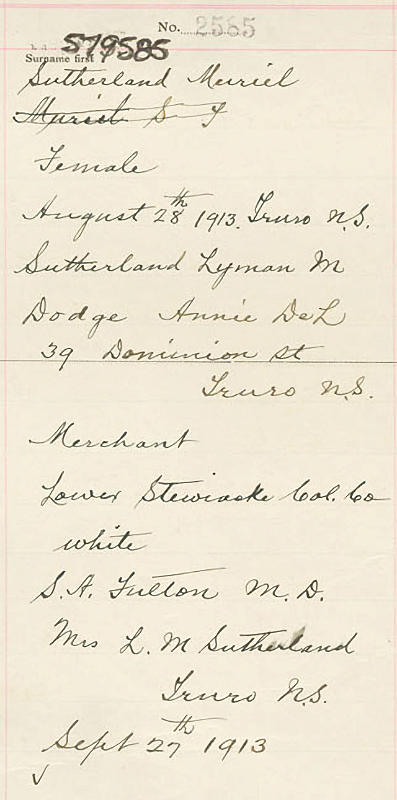 No. 2585
579585
Surname first
Sutherland Muriel
Muriel S F
Female
August 28th 1913. Truro N.S.
Sutherland Lyman M
Dodge Annie DeL
39 Dominion St
Truro N.S.
Merchant
Lower Stewiacke Col. Co
white
S. A. Fulton M. D.
Mrs L. M Sutherland
Truro N.S.
Sept 27th 1913
✓